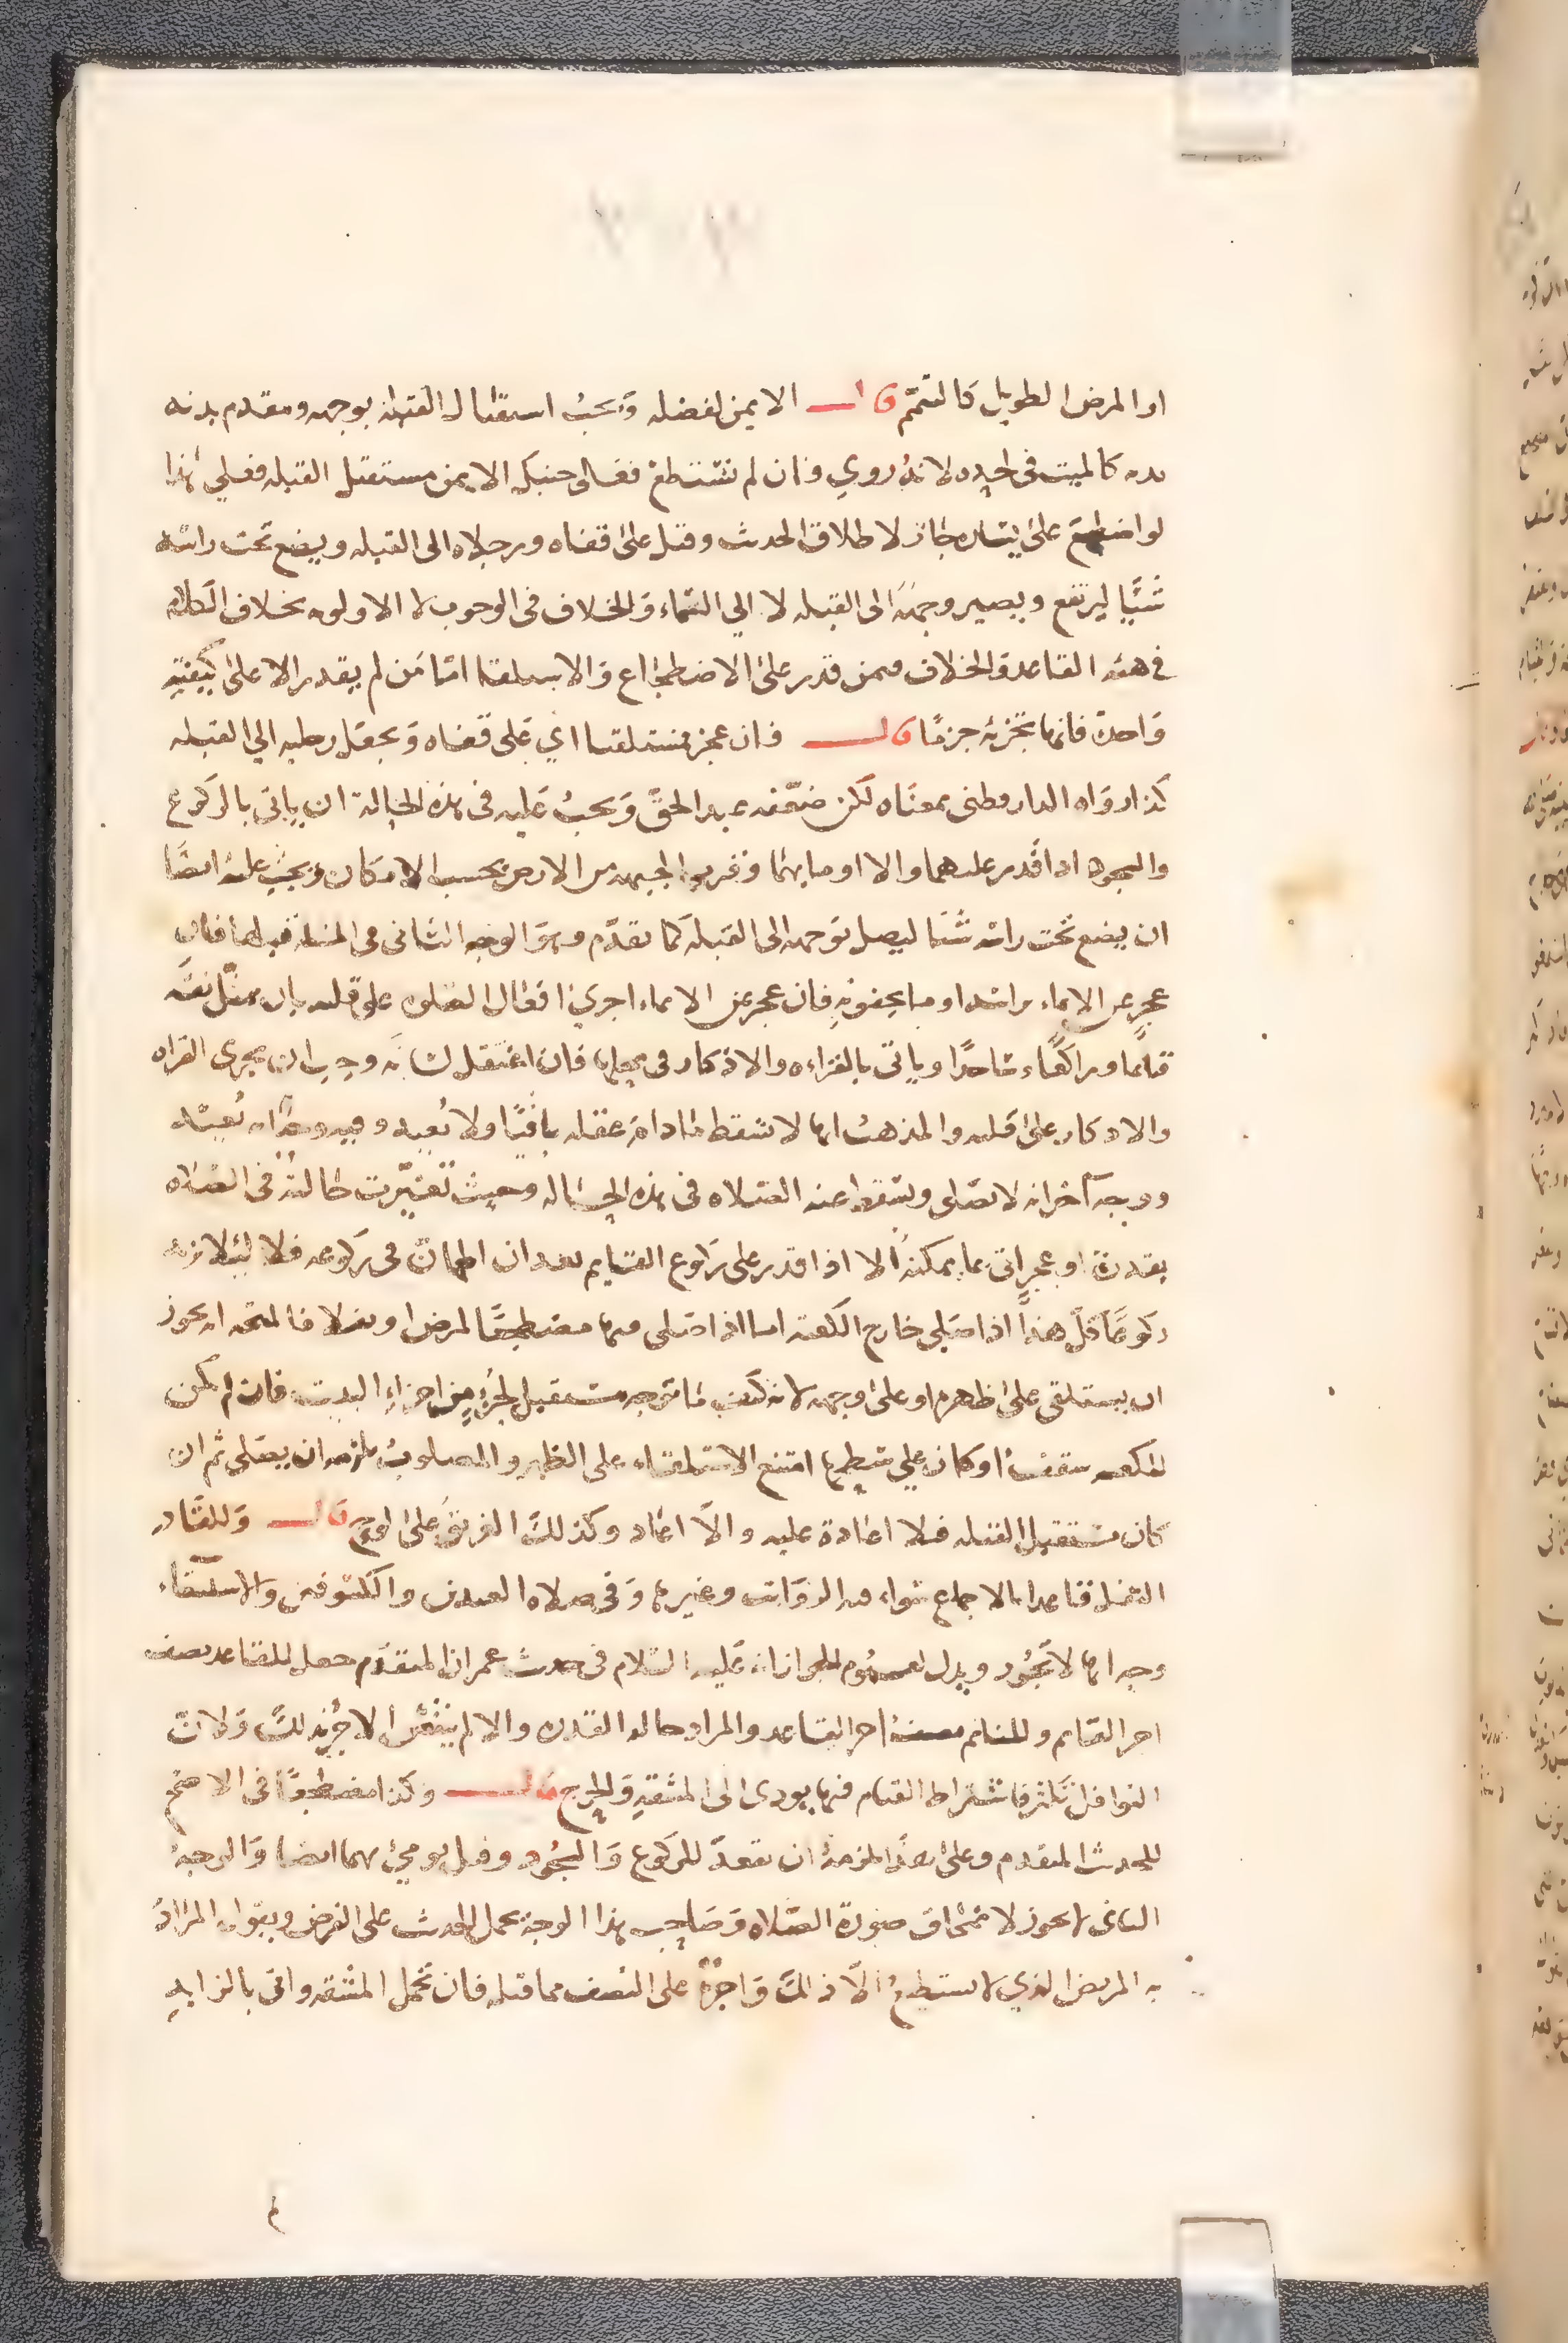 او المرض الطويل كالتيمم قال الايمن لفضله ويجب استقبال القبلة بوجهه ومقدم بدنه
كالميت في لحده لانه روي فان لم تستطع فعلى جنبك الايمن مستقبل القبله فعلى هذا
لو اضطجع على يساره جاز لاطلاق الحديث وقيل على قفاه ورجلاه الى القبله ويضع تحت راسه
شيئا ليرتفع ويصير وجهه الى القبله لا الي السماء والخلاف في الوجوب لا الاولويه بخلاف الكلام
في هيئه القاعد والخلاف فيمن قدر على الاضطجاع والاستلقاء امّا من لم يقدر الا على كيفيّة
واحدة فانها تجزئه جزمًا قال فان عجز فمستلقيا اي على قفاه ويجعل رجليه الي القبله
كذا رواه الدارقطني بمعناه لكن ضعّفه عبد الحقّ ويجب عليه في هذه الحالة ان ياتى بالركوع
والسجود اذا قدر عليهما والا اومأ بهما وقرب الجبهه من الارض بحسب الامكان ويجب عليه ايضًا
ان يضع تحت راسه شيئا ليصل توجهه الى القبله كما تقدّم وهو الوجه الثانى في المسئلة قبلها فان
عجز عن الايماء براسه اومأ بجفونه فان عجز عن الايماء اجرى افعال الصلوة على قلبه بان يمثّل نفسه
قائما وراكعًا وساجدًا وياتى بالقراءه والاذكار في محلها فان اعتقل لسانه وجب ان يجرى القراه
والاذكار على قلبه والمذهب انها لا تسقط مادام عقله باقيًا ولا يُعيد وفيه وجه انه يُعيد
ووجه آخر انه لا يصلى وتسقط عنه الصلاه في هذه الحاله وحيث تغيّرت حالته في الصلاه
بقدرة او عجز اتى بما يمكنه الا اذا قدر على ركوع القايم بعد ان اطمأنّ في ركوعه فلا لئلا يزيد
ركوعًا قلّ هذا اذا صلى خارج الكعبه اما اذا صلى فيها مضطجعًا لمرض او نفلا فالمتجه انه يجوز
ان يستلقى على ظهره او على وجهه لانه كيف ما توجه مستقبل لجزء من اجزاء البيت فان لم يكن
للكعبه سقف او كان على سطحها امتنع الاستلقاء على الظهر والمصلوب يلزمه ان يصلى ثم ان
كان مستقبل القبله فلا اعادة عليه والّا اعاد وكذلك الغريق على لوح قال وللقادر
التنفل قاعدا بالاجماع سواء فيه الرواتب وغيرها وفي صلاه العيدين والكسوفين والاستسقاء
وجه انها لا تجوز ويدل لعموم الجواز انه عليه السلام في حديث عمران المتقدم جعل للقاعد نصف
اجر القايم وللنائم نصف اجر القاعد والمراد حاله القدره والا لم ينقص الاجر بذلك ولانّ
النوافل تكثر فاشتراط القيام فيها يودى الى المشقه والحرج قال وكذا مضطجعًا في الاصح
للحديث المتقدم وعلى هذا يلزمه ان يقعد للركوع والسجود وقيل يومئ بهما ايضا والوجه
الثانى لا يجوز لانمحاق صورة الصلاه وصاحب هذا الوجه يحمل الحديث على الفرض ويقول المراد
به المريض الذي لا يستطيع الّا ذلك واجره على النصف مما قبله فان تحمل المشقه واتى بالزايد